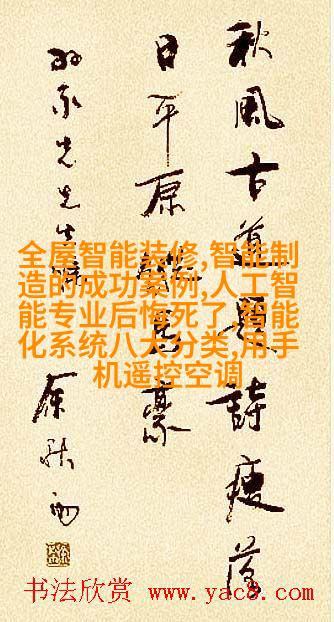 秋風古道題詩瘦落
日平原縱馬豪
先生
余秋雨
全屋智能装修,智能制
造的成功案例,人工智
能专业后悔死了,智能
化系统八大分类,用手
机遥控空调
书法欣赏 www.yac8.com